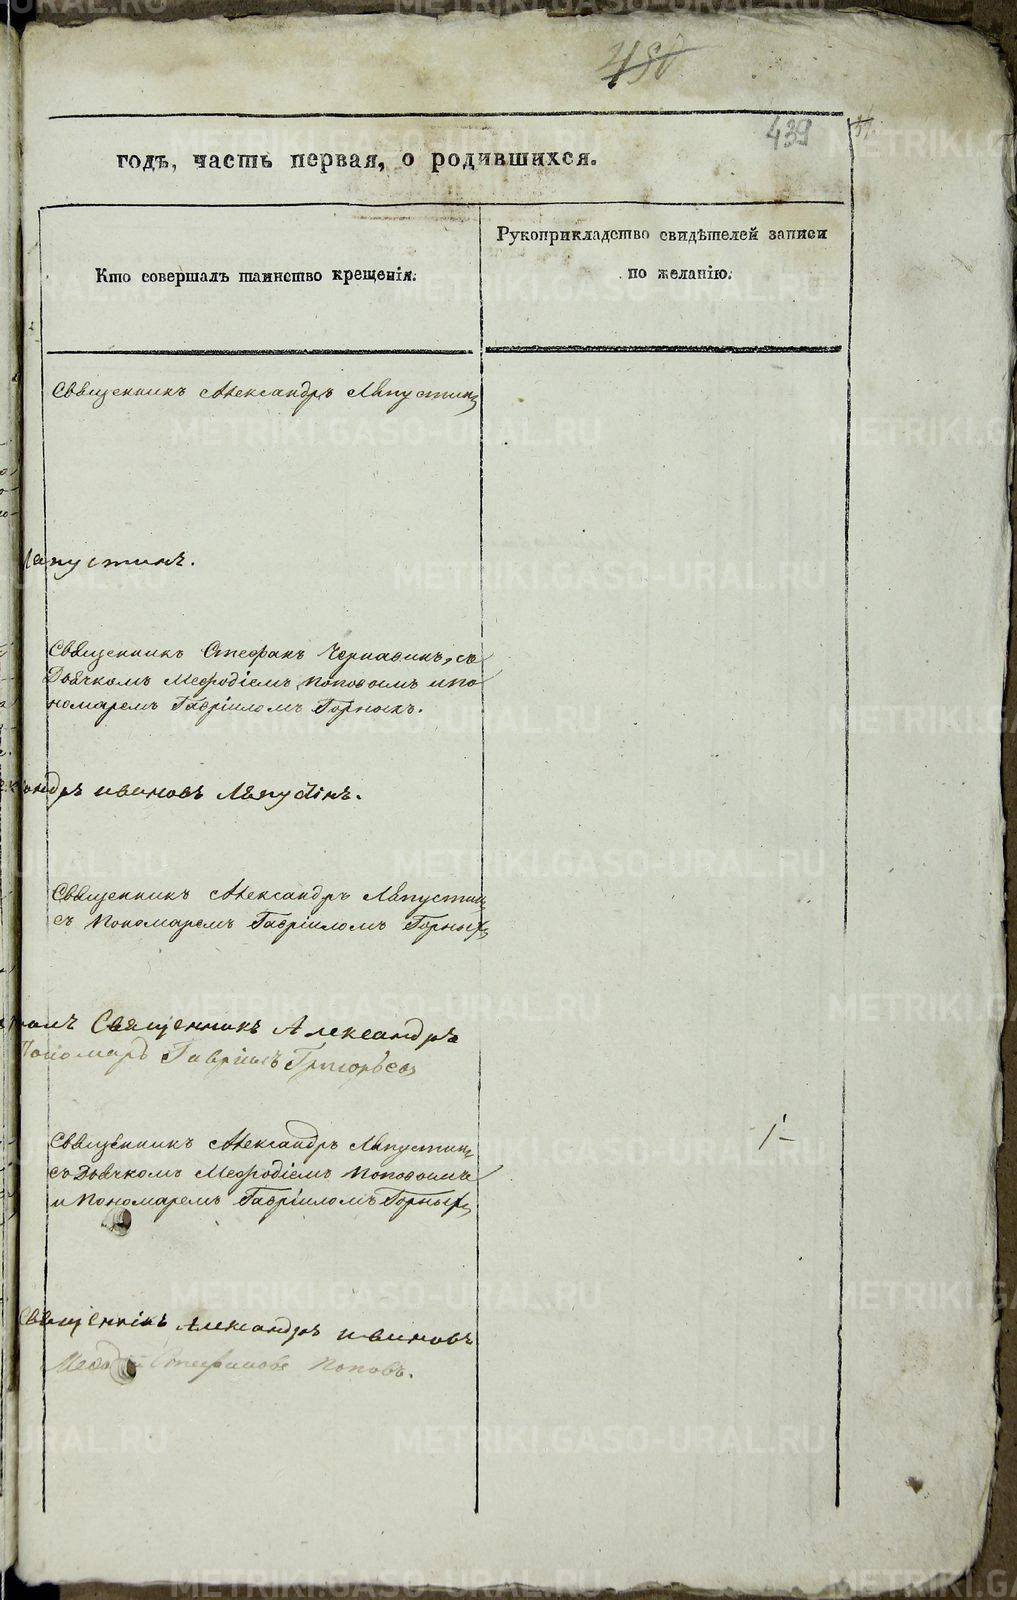 480
439
годъ, часть первая, о родившихся.
Кто совершалъ таинство крещенія.
Рукоприкладство свидѣтелей записи
по желанію.
Священникъ Александръ Ляпустинъ
Ляпустинъ.
Священникъ Стефанъ Чернавинъ, съ
Дьячкомъ Меѳодіемъ Поповымъ и по
номаремъ Гавріиломъ Горныхъ.
Ивановъ Ляпустинъ.
Священникъ Александръ Ляпустинъ
съ Пономаремъ Гавріиломъ Горныхъ
Священникъ Александръ
Пономарь Гавріилъ Григорьевъ
Священникъ Александръ Ляпустинъ
съ Дьячкомъ Меѳодіемъ Поповымъ
и Пономаремъ Гавріиломъ Горныхъ
Священнікъ Александръ Ивановъ
Стефановъ Поповъ.
METRIKI.GASO-URAL.RU